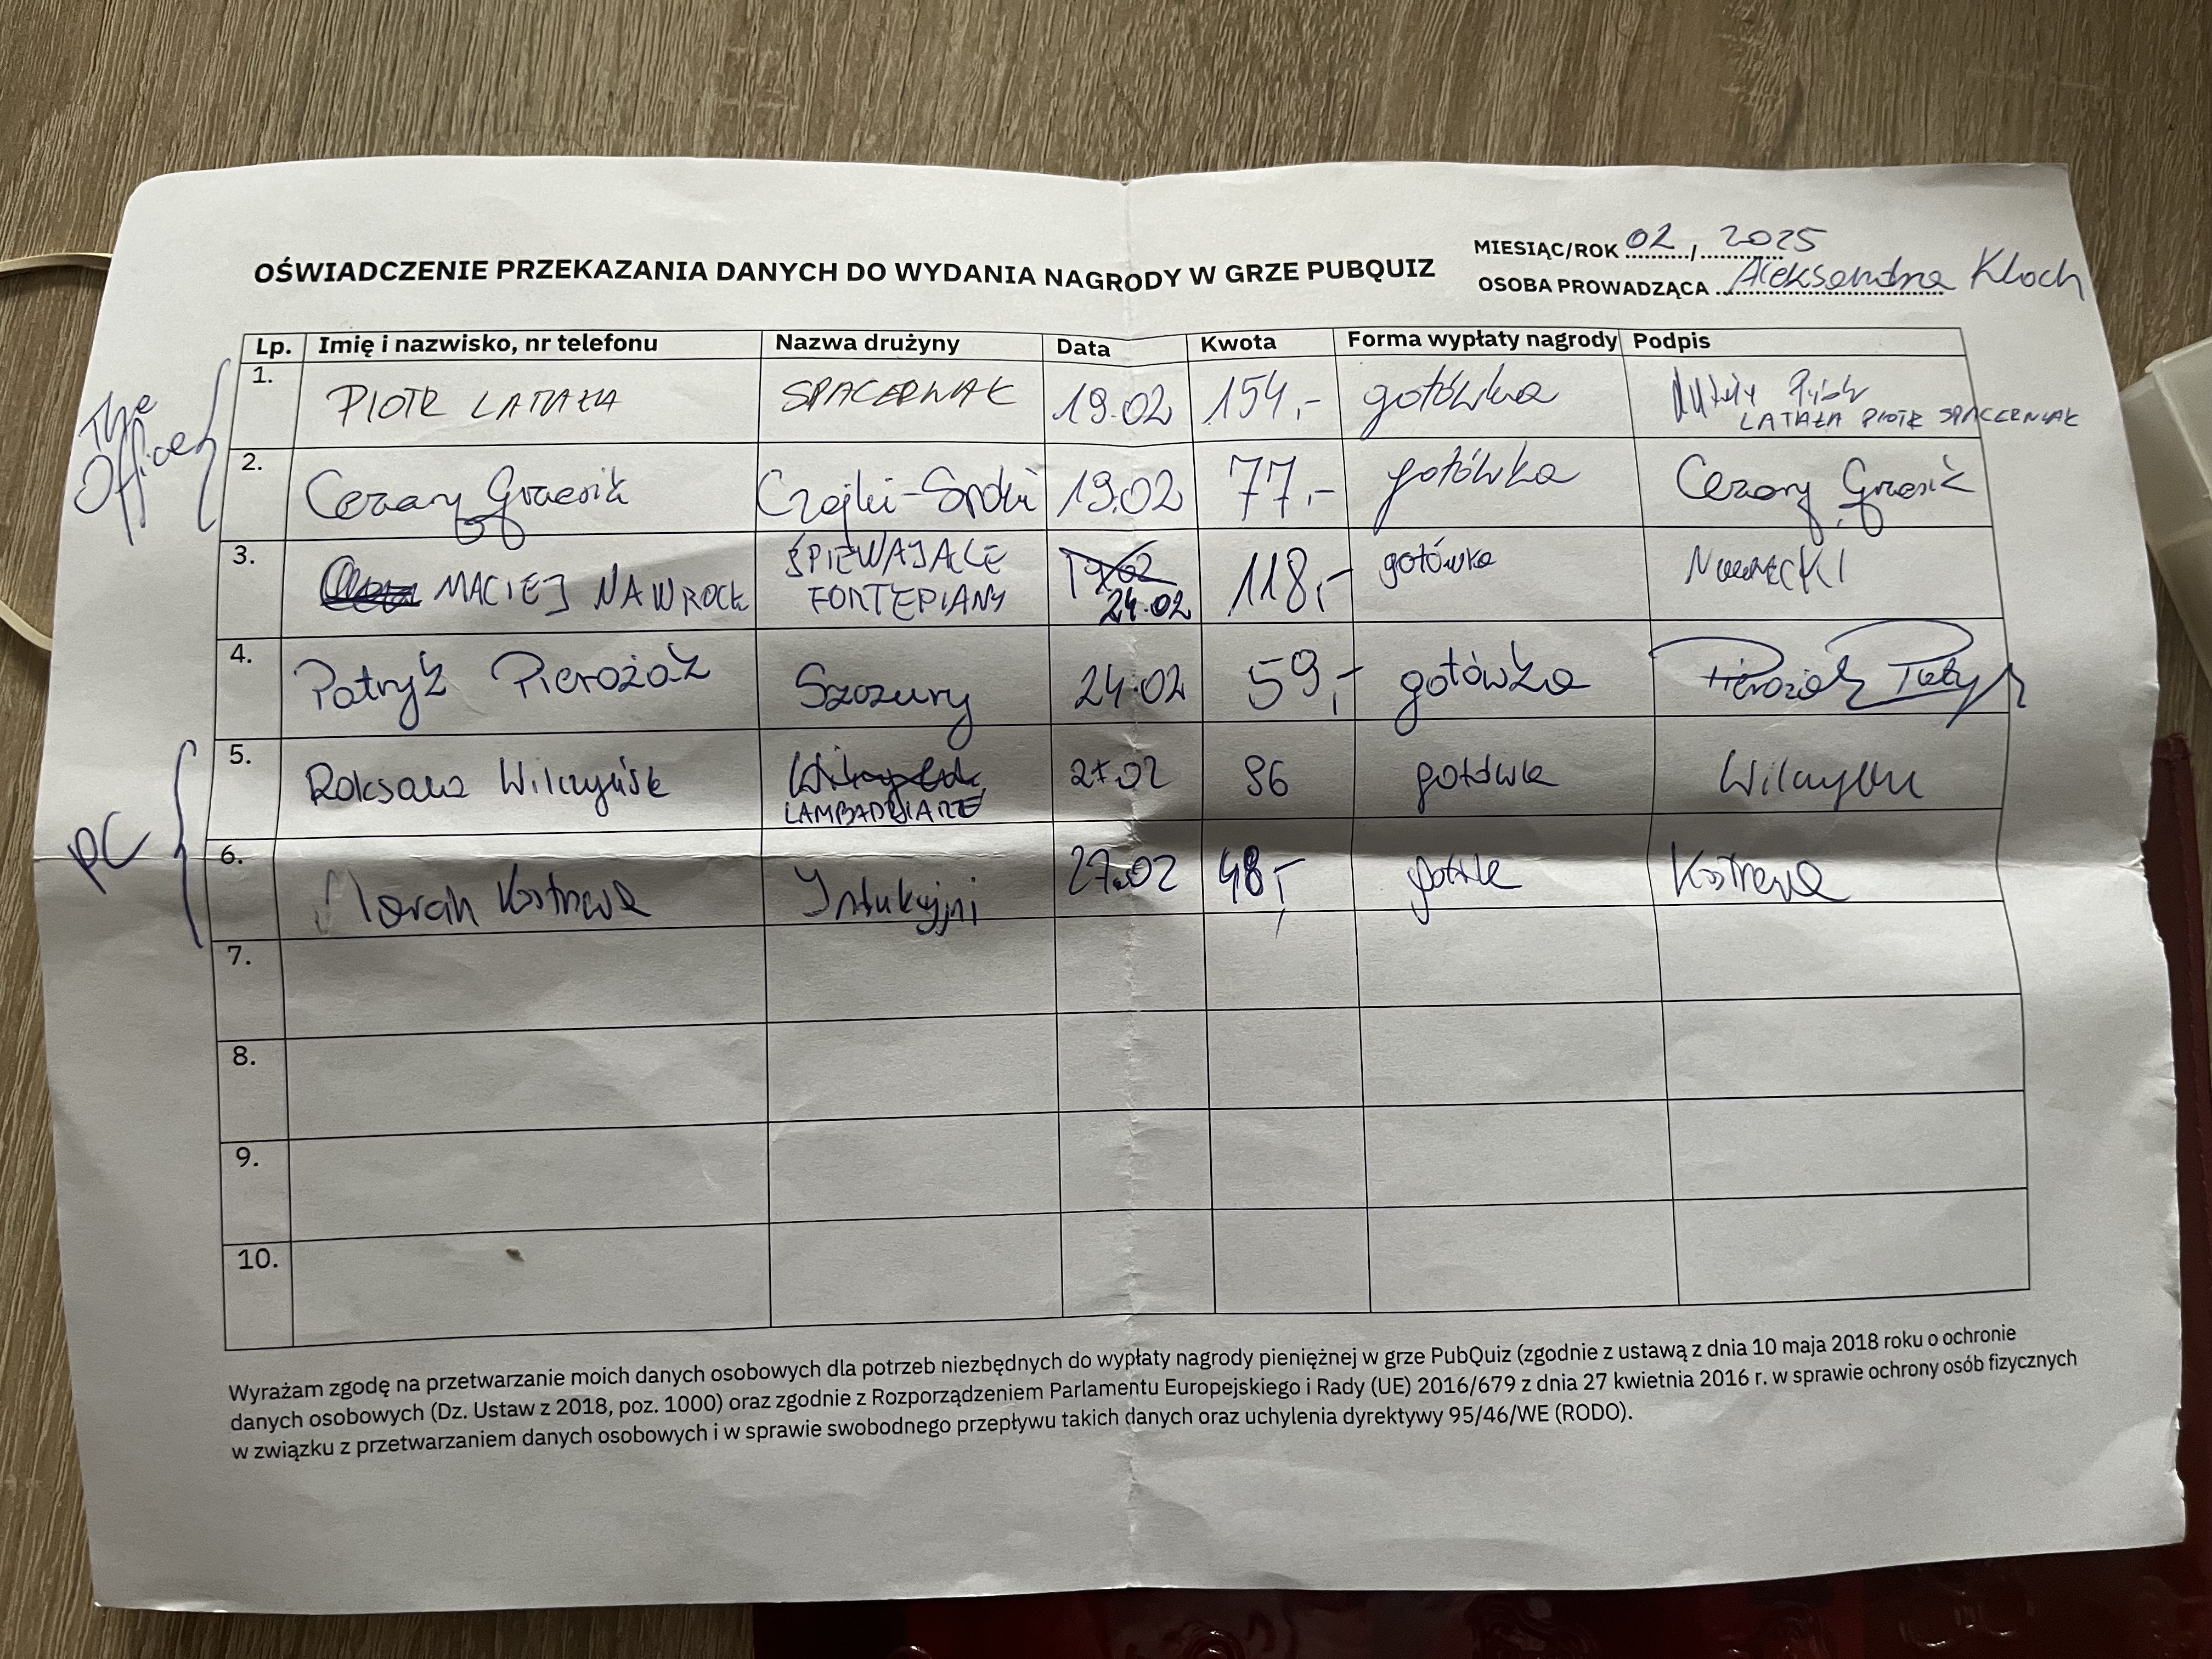 MIESIĄC/ROK 02 / 2025
OŚWIADCZENIE PRZEKAZANIA DANYCH DO WYDANIA NAGRODY W GRZE PUBQUIZ
OSOBA PROWADZĄCA Aleksandra Kloch
Lp. Imię i nazwisko, nr telefonu Nazwa drużyny Data Kwota Forma wypłaty nagrody Podpis
The Office
1. PIOTR LATAŁA SPACERNIAK 19.02 154,- gotówka
LATAŁA PIOTR SPACERNIAK
2. Cezary Grzesik 19.02 77,- gotówka Cezary Grzesik
3. MACIEJ NAWROCKI ŚPIEWAJĄCE FORTEPIANY 24.02 118,- gotówka NAWROCKI
4. Patryk Pierożak Szczury 24.02 59,- gotówka Pierożak Patryk
PC
5. Roksana LAMBADZIARZE 27.02 96 gotówka
6. Marcin Kostrzewa Indukcyjni 27.02 48,- Kostrzewa
7.
8.
9.
10.
Wyrażam zgodę na przetwarzanie moich danych osobowych dla potrzeb niezbędnych do wypłaty nagrody pieniężnej w grze PubQuiz (zgodnie z ustawą z dnia 10 maja 2018 roku o ochronie
danych osobowych (Dz. Ustaw z 2018, poz. 1000) oraz zgodnie z Rozporządzeniem Parlamentu Europejskiego i Rady (UE) 2016/679 z dnia 27 kwietnia 2016 r. w sprawie ochrony osób fizycznych
w związku z przetwarzaniem danych osobowych i w sprawie swobodnego przepływu takich danych oraz uchylenia dyrektywy 95/46/WE (RODO).